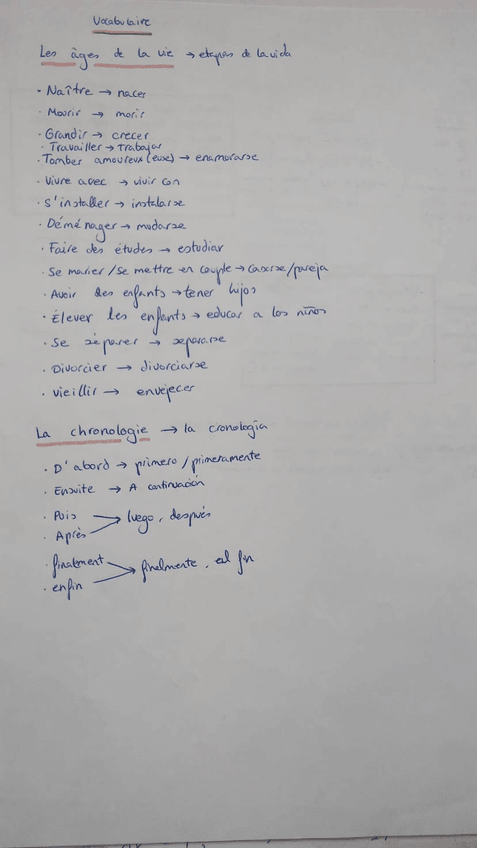 Vocabulaire
Les âges de la vie → etapas de la vida
· Naître → nacer
· Mourir → morir
· Grandir → crecer
· Travailler → trabajar
· Tomber amoureux (euse) → enamorarse
· Vivre avec → vivir con
· S'installer → instalarse
· Déménager → mudarse
· Faire des études → estudiar
· Se marier / se mettre en couple → casarse/pareja
· Avoir des enfants → tener hijos
· Élever les enfants → educar a los niños
· Se séparer → separarse
· Divorcier → divorciarse
· Vieillir → envejecer
La chronologie → la cronología
· D'abord → primero / primeramente
· Ensuite → A continuación
· Puis
→ luego, después
· Après
· finalment
→ finalmente, al fin
· enfin